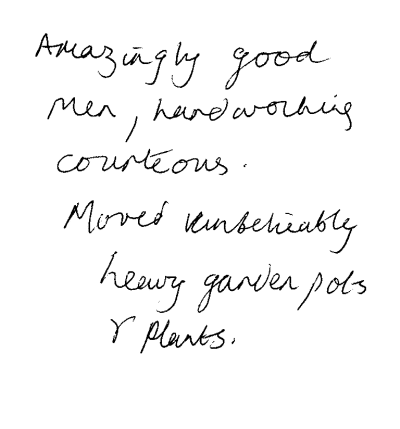 Amazingly good
men, hardworking
courteous.
Moved unbelievably
heavy garden pots
& plants.